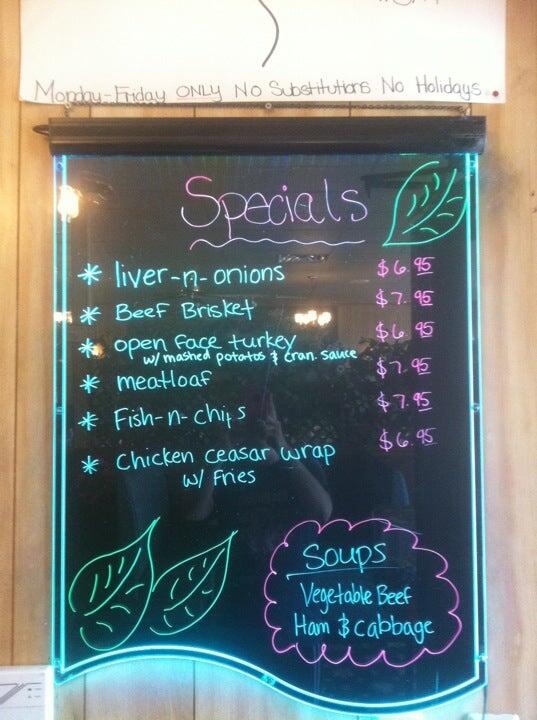 Monday-Friday ONLY No Substitutions No Holidays
Specials
* liver-n-onions $6.95
* Beef Brisket $7.95
* open face turkey $6.95
w/ mashed potatos & cran. sauce
* meatloaf $7.95
* Fish-n-chips $7.95
* Chicken ceasar wrap $6.95
w/ Fries
Soups
Vegetable Beef
Ham & cabbage